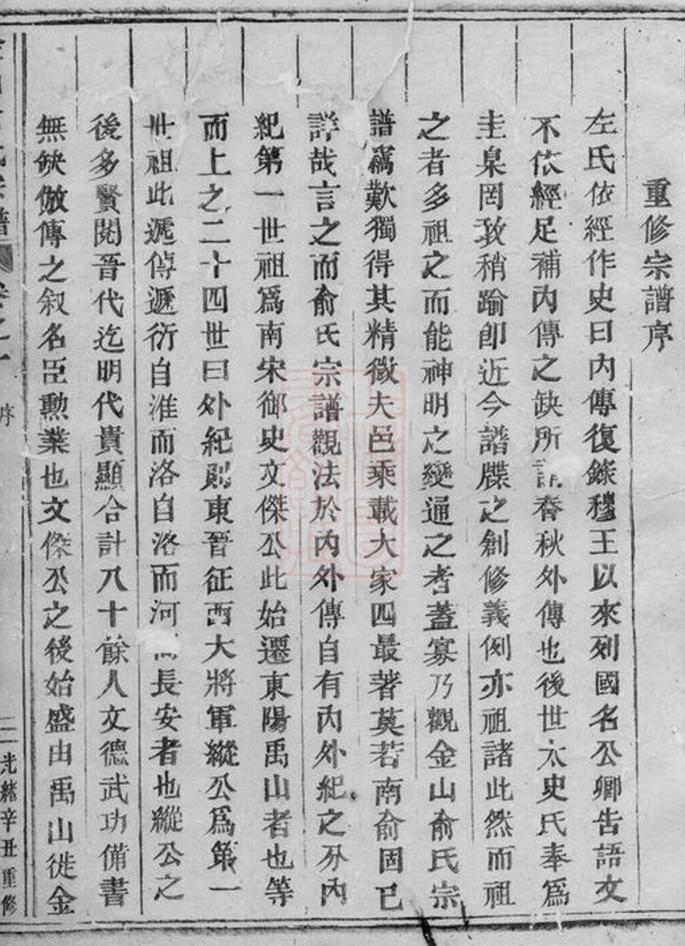 重修宗譜序
左氏依經作史曰內傳復錄穆王以來列國名公卿告語文
不依經足補內傳之缺所謂春秋外傳也後世太史氏奉爲
圭臬罔敢稍踰卽近今譜牒之創修義例亦祖諸此然而祖
之者多祖之而能神明之變通之者蓋寡乃觀金山俞氏宗
譜窩歎獨得其精微夫邑乘載大家四最著莫若南俞固已
詳哉言之而俞氏宗譜觀法於內外傳自有內外紀之分內
紀第一世祖爲南宋御史文傑公此始遷東陽禹山者也等
而上之二十四世曰外紀則東晉征西大將軍縱公爲第一
世祖此遞傳遞衍自淮而洛自洛而河 長安者也縱公之
後多賢閱晉代迄明代貴顯合計八十餘人文德武功備書
無缺倣傳之叙名臣勳業也文傑公之後始盛由禹山徙金
氏宗譜 卷之一 序 二 光緒辛丑重修